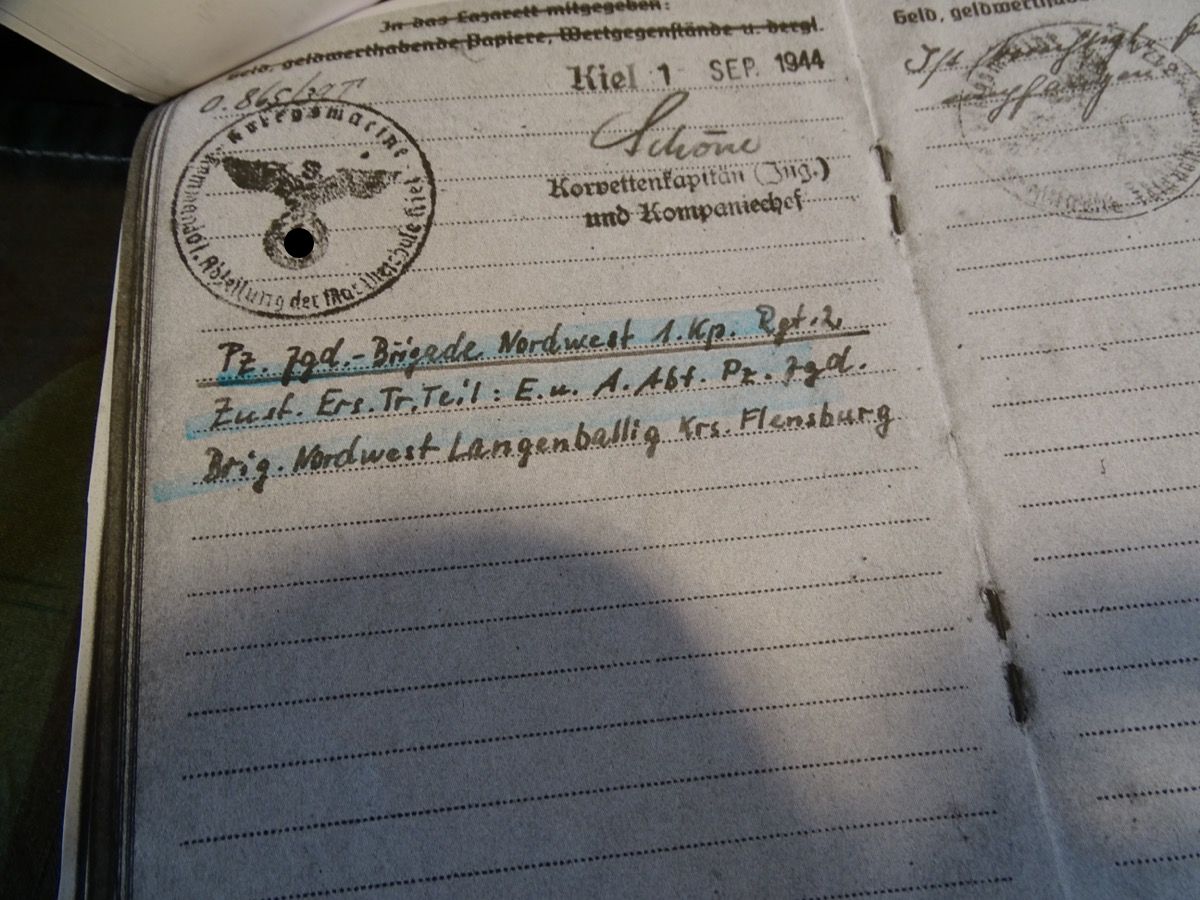 In das Lazarett mitgegeben:
Geld, geldwerthabende Papiere, Wertgegenstände u. dergl.
Kiel 1 SEP. 1944
Schöne
Korvettenkapitän (Ing.)
und Kompaniechef
Kriegsmarine
Abteilung der
Pz. Jgd.-Brigade Nordwest 1. Kp. Rgt. 2,
Zust. Ers. Tr. Teil: E. u. A. Abt. Pz. Jgd.
Brig. Nordwest Langenballig Krs. Flensburg
Geld,